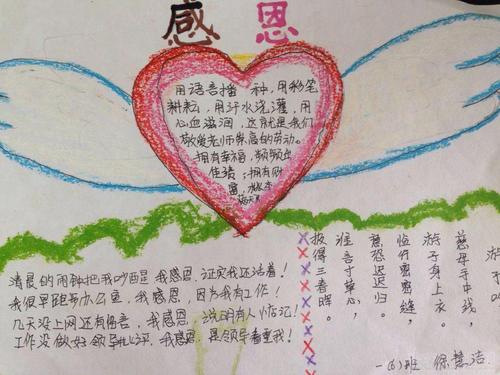 感恩
用语言播 种，用彩笔
耕耘，用汗水浇灌，用
心血滋润，这就是我们
敬爱老师崇高的劳动。
拥有幸福，频频
佳绩；拥有财
富，
清晨的闹钟把我吵醒 我感恩，证实我还活着！
我很早跑步办公室，我感恩，因为我有工作！
几天没上网还有留言，我感恩，说明有人惦记！
工作没做好领导批评，我感恩，是领导看重我！
游
慈母手中线，
游子身上衣。
临行密密缝，
意恐迟迟归。
谁言寸草心，
报得三春晖。
一(6)班 徐慧洁